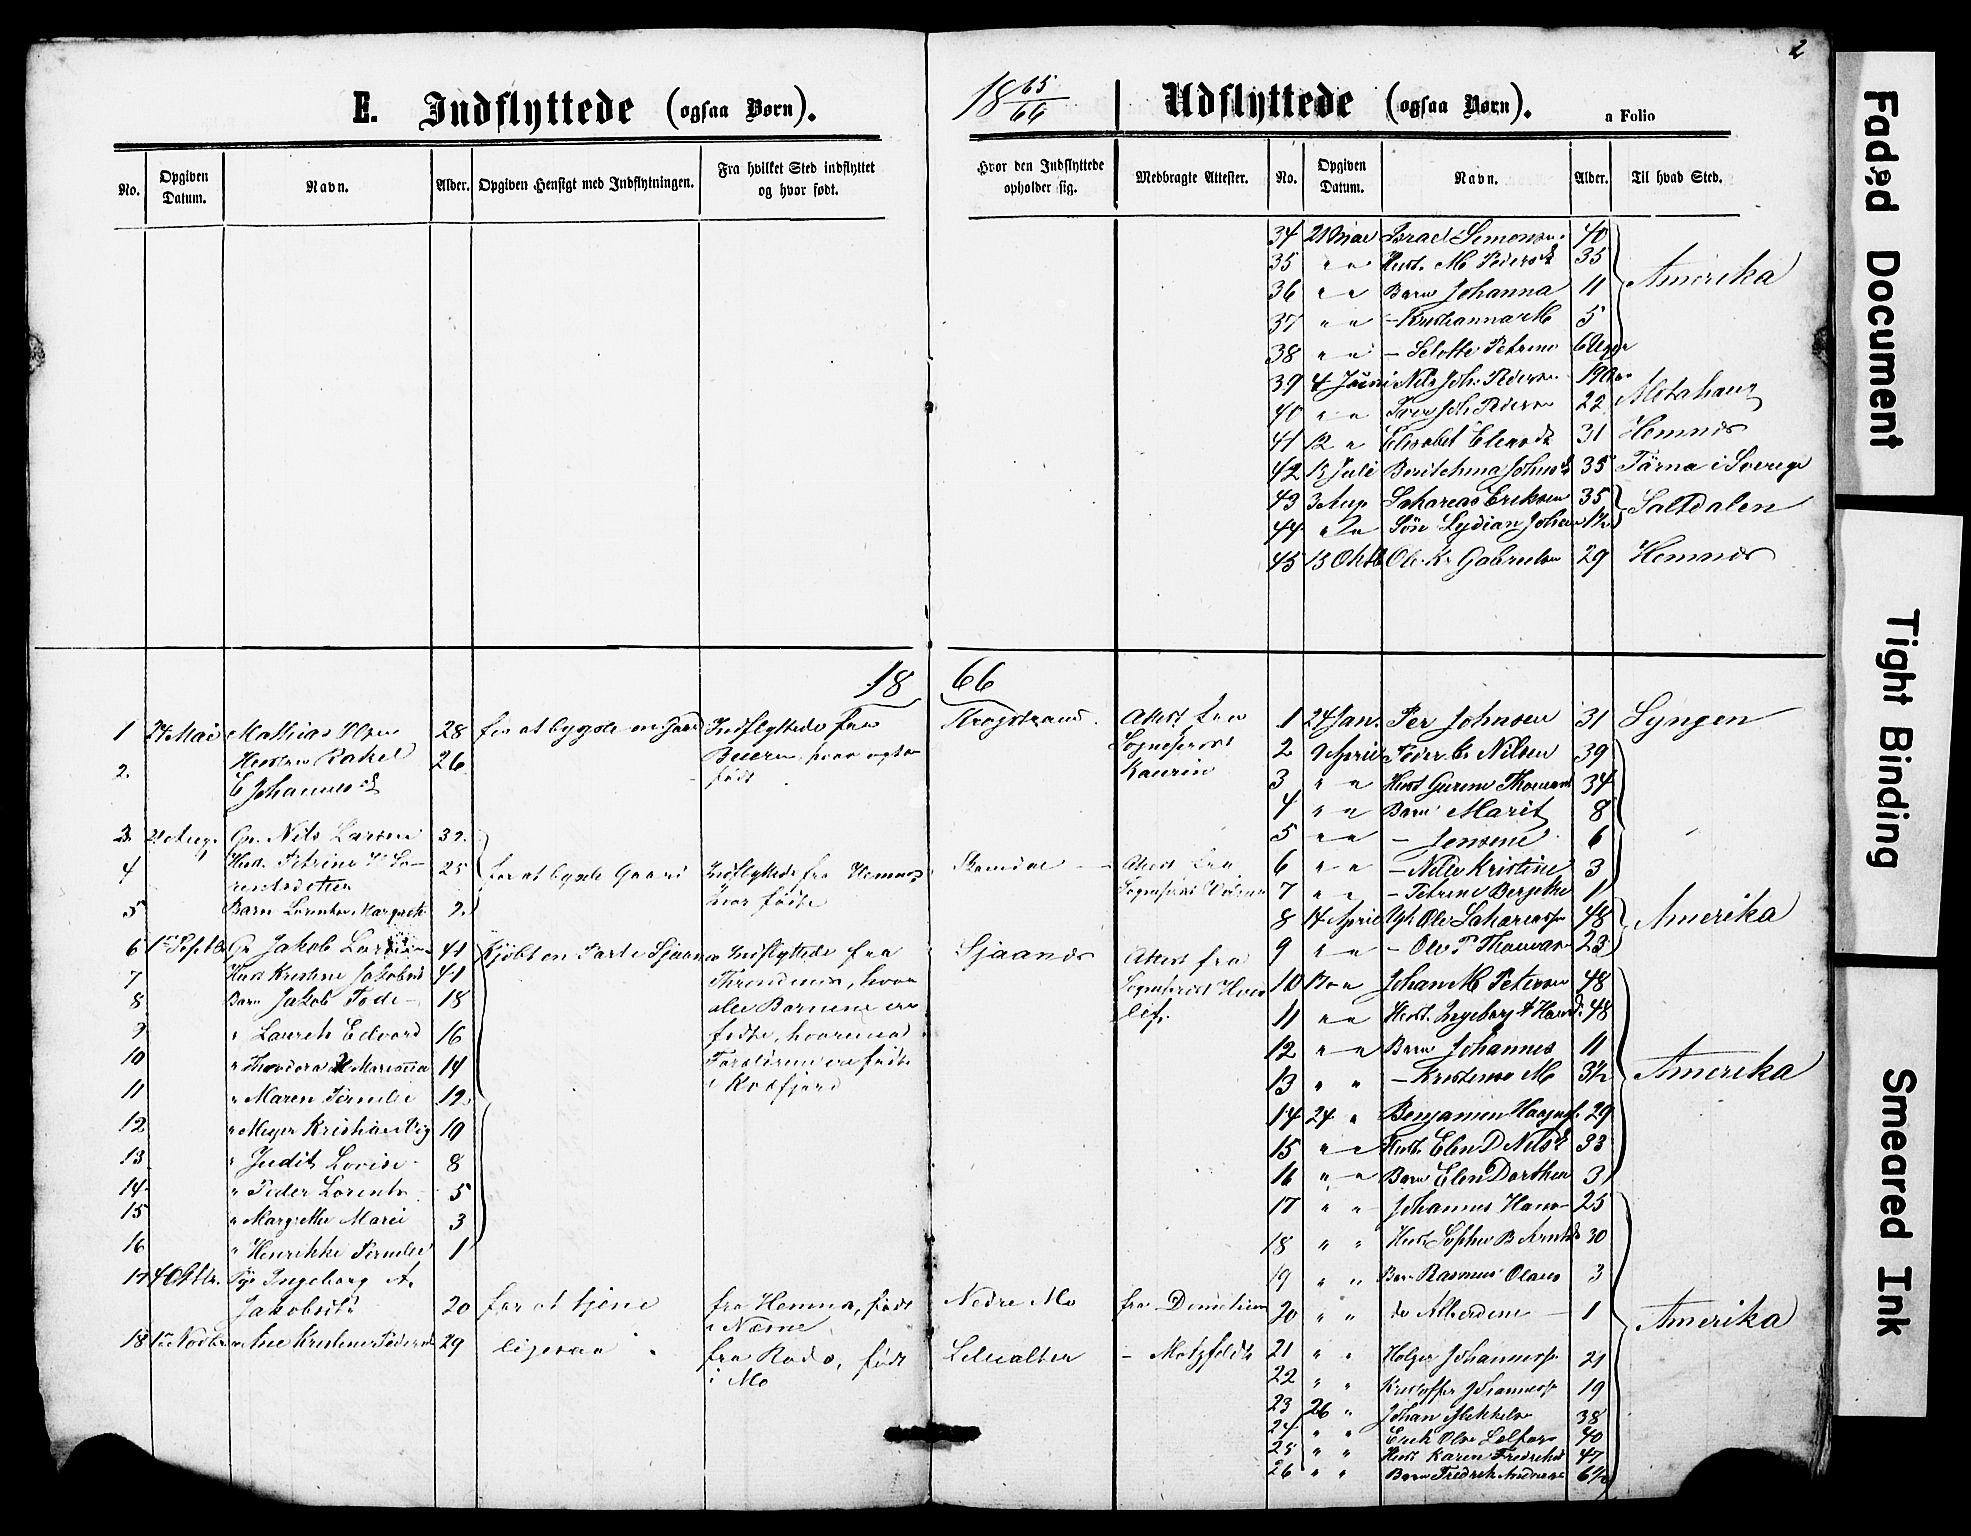 2
E. Indflyttede (ogsaa Børn).
18 65/66
Udflyttede (ogsaa Børn).
a Folio
No. Opgiven Datum. Navn. Alder. Opgiven Hensigt med Indflytningen. Fra hvilket Sted indflyttet og hvor født.
Hvor den Indflyttede opholder sig. Medbragte Attester. No. Opgiven Datum. Navn. Alder. Til hvad Sted.
34 21 Mai Israel Simonsen 40
35 " " Hust. M Peders 35
36 " " Barn Johanna 11 Amerika
37 " " - Kristianna M 5
38 " " - Petrine 6 Uger
39 4 Juni Nils Joh. Pedersen 19
40 " " Joh. Pedersen 22
41 12 " Elisabet 31 Hemnes
42 13 Juli 35 Tärna i Sverige
43 3 Aug. Sakarias Eriksen 35 Saltdalen
44 " " Søn Lydian Johan
45 13 Oktb Ole Kr Gabrielsen 29 Hemnes
18 66
1 24 Mai Mathias Olsen 28 for at bygsle en Gaard Indflyttede fra
2. Hustru Rakel 26 Beiern, hvor ogsaa
E Johannesd født
3. 2 Aug. Gm. Nils Larsen 32
4 Hust. Petrine Lo- 25 for at bygsle Gaard Indflyttede fra Hemnes
rentsdatter hvor fødte
5 Barn Lorentse Margreth 2
6 1 Septbr Gm Jakob Larsen 44 Kjøbt en Part i Sjaanes Indflyttede fra
7 Hust Kristine Jakobsd 41 Throndenes, hvor
8 Barn Jakob Tode 18 alle Børnene ere
9 " Laurets Edvard 16 fødte, hvorimod
10 " Theodora Marianna 14 Forældrene ere fødte
11 " Maren Pernilie 12 i Kolfjord
12 " Meyer Kristian 10
13 " Judit Lovise 8
14 " Peder Lorents 5
15 " Margrethe Marie 3
16 " Henrikke Pernilie 1
17 4 Oktbr. Pige Ingeborg A.
Jakobsdtr 20 for at tjene fra Hemnes, født
i Næsne
18 1 Novbr Ane Kristine Pedersd 29 ligesaa fra Rødø, født
i Mo
Attest fra
Sogneprest
Kaurin
Attest fra
Sjaanes Attest fra
Sogneprest
Nedre Mo fra
- Motzfeldt
1 24 Jan. Per Johnsen 31 Lyngen
2 9 April Peder C. Nilsen 39
3 " " Hust Gurine Thomasd 34
4 " " Barn Marit 8
5 " " - Jensine 6
6 " " - Nille Kristine 3
7 " " - Petrine Bergethe 1
8 14 April Ole Sakariass 48 Amerika
9 " " - Ole P Thomasen 23
10 17 " Johan M Petersen 48
11 " " Hust. Ingeborg 48
12 " " Barn Johannes 11
13 " " - Kristense M 3½ Amerika
14 24 " Benjamin 29
15 " " Hust Elen D Nilsd 33
16 " " Barn Elen Dorthea 3
17 " " Johannes Hans 25
18 " " Hust Sophie B Arntsd 30
19 " " Barn Rasmus Olaus 3
20 " " do Alberdine 1 Amerika
21 " " Holger Johanness 21
22 " " Kristoffer Johanness 19
23 26 " Johan Mikkels 38
24 " " Erik Olsen 40
25 " " Hust Karen Fredriksd 47
26 " " Barn Fredrik Andreas 6½
Faded Document
Tight Binding
Smeared Ink